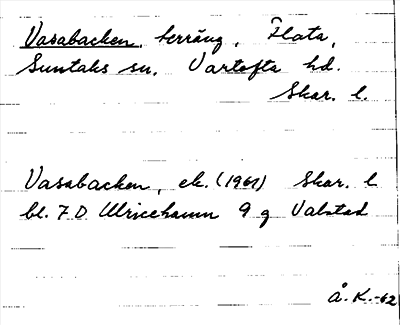 Vasabacken, terräng, Flata,
Suntaks sn. Vartofta hd.
Skar. l.
Vasabacken, ek. (1961) Skar. l
bl. 7 D Ulricehamn 9 g Valstad
Å. K.-62